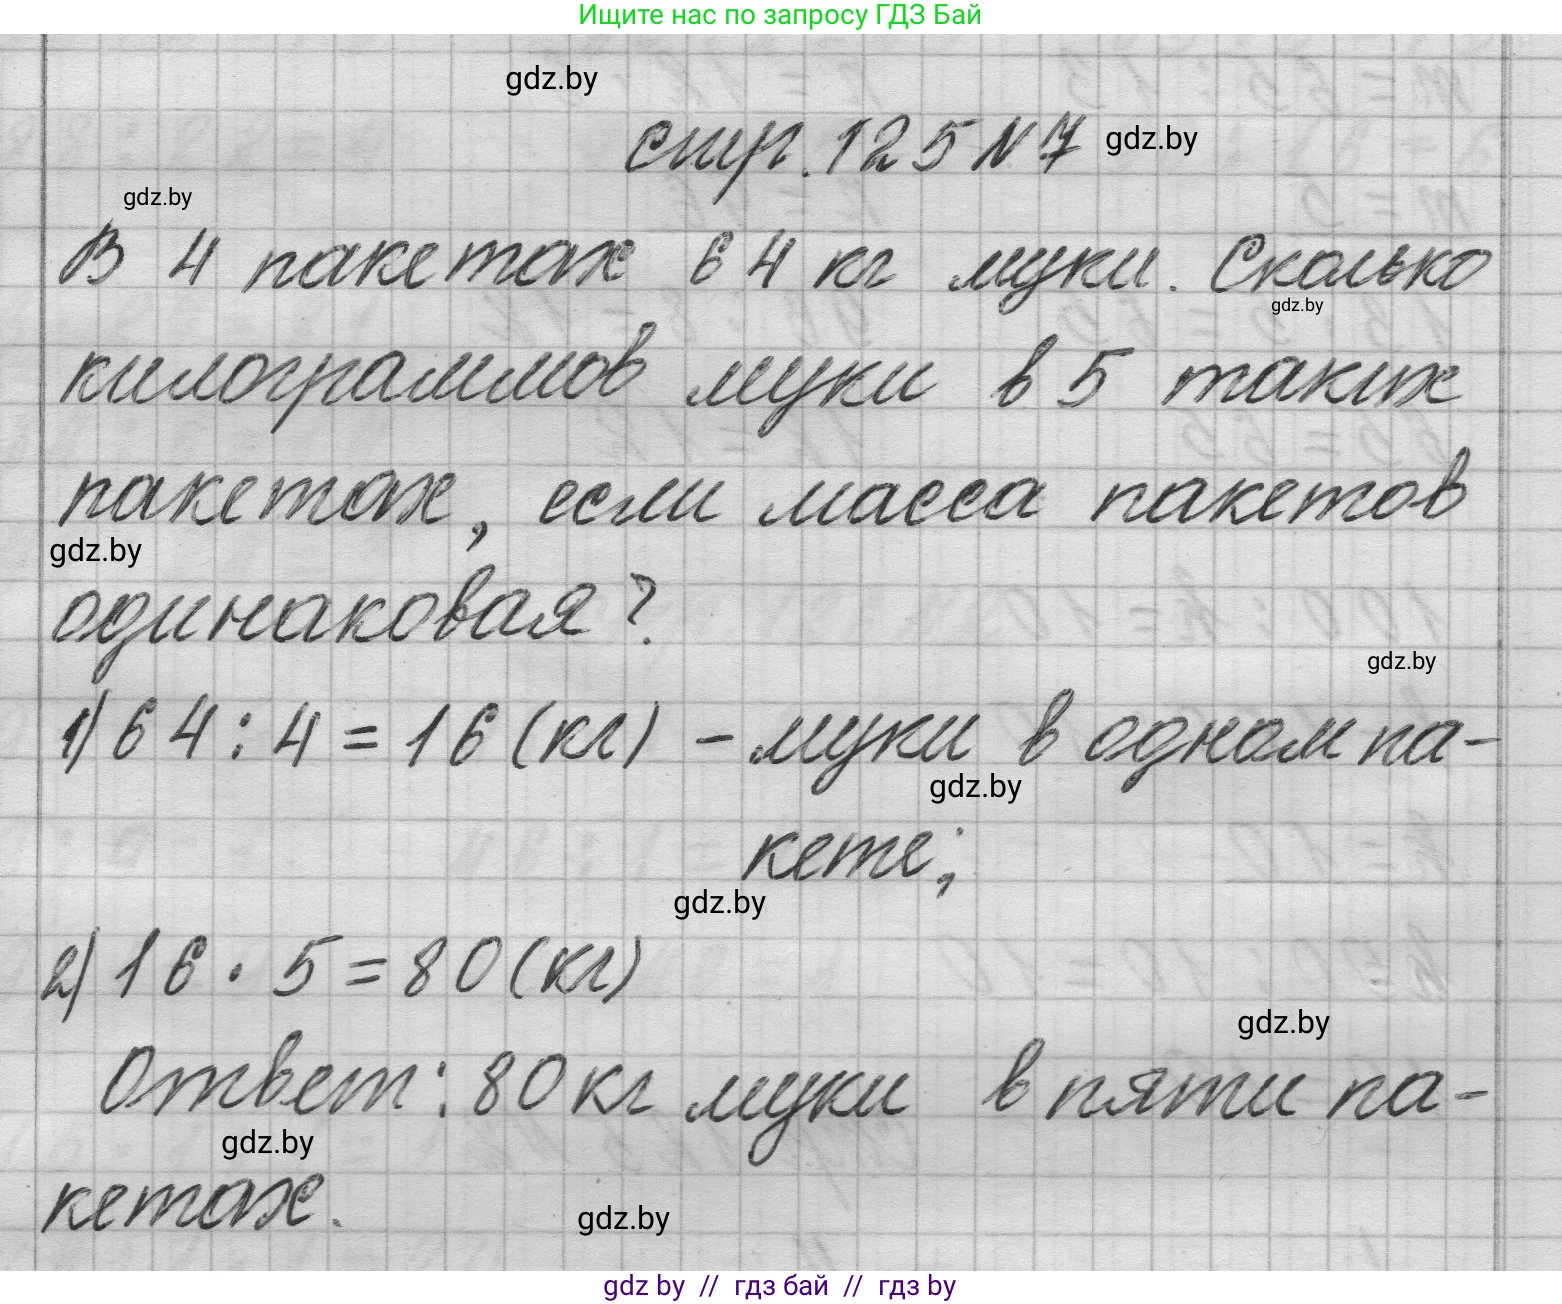 Ищите нас по запросу ГДЗ Бай
gdz.by
стр. 125 N 7 gdz.by
gdz.by
В 4 пакетах 64 кг муки. Сколько
gdz.by
килограммов муки в 5 таких
пакетах, если масса пакетов
gdz.by
одинаковая?
gdz.by
1) 64 : 4 = 16 (кг) – муки в одном па-
gdz.by
кете;
gdz.by
2) 16 · 5 = 80 (кг)
gdz.by
Ответ: 80 кг муки в пяти па-
gdz.by
кетах.
gdz.by
gdz by // гдз бай // гдз by